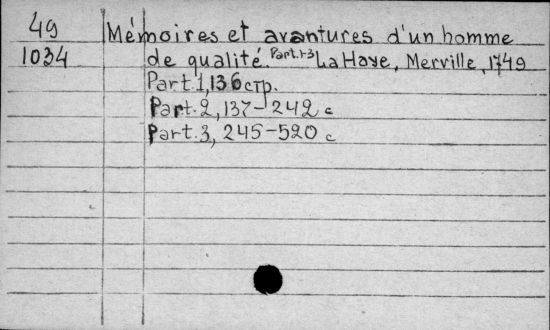 49 Mémoires et avantures d'un homme
1034 de qualité Part.1-3 La Haye, Merville, 1749
Part.1, 136 стр.
Part.2, 137-242 с
Part.3, 245-520 с